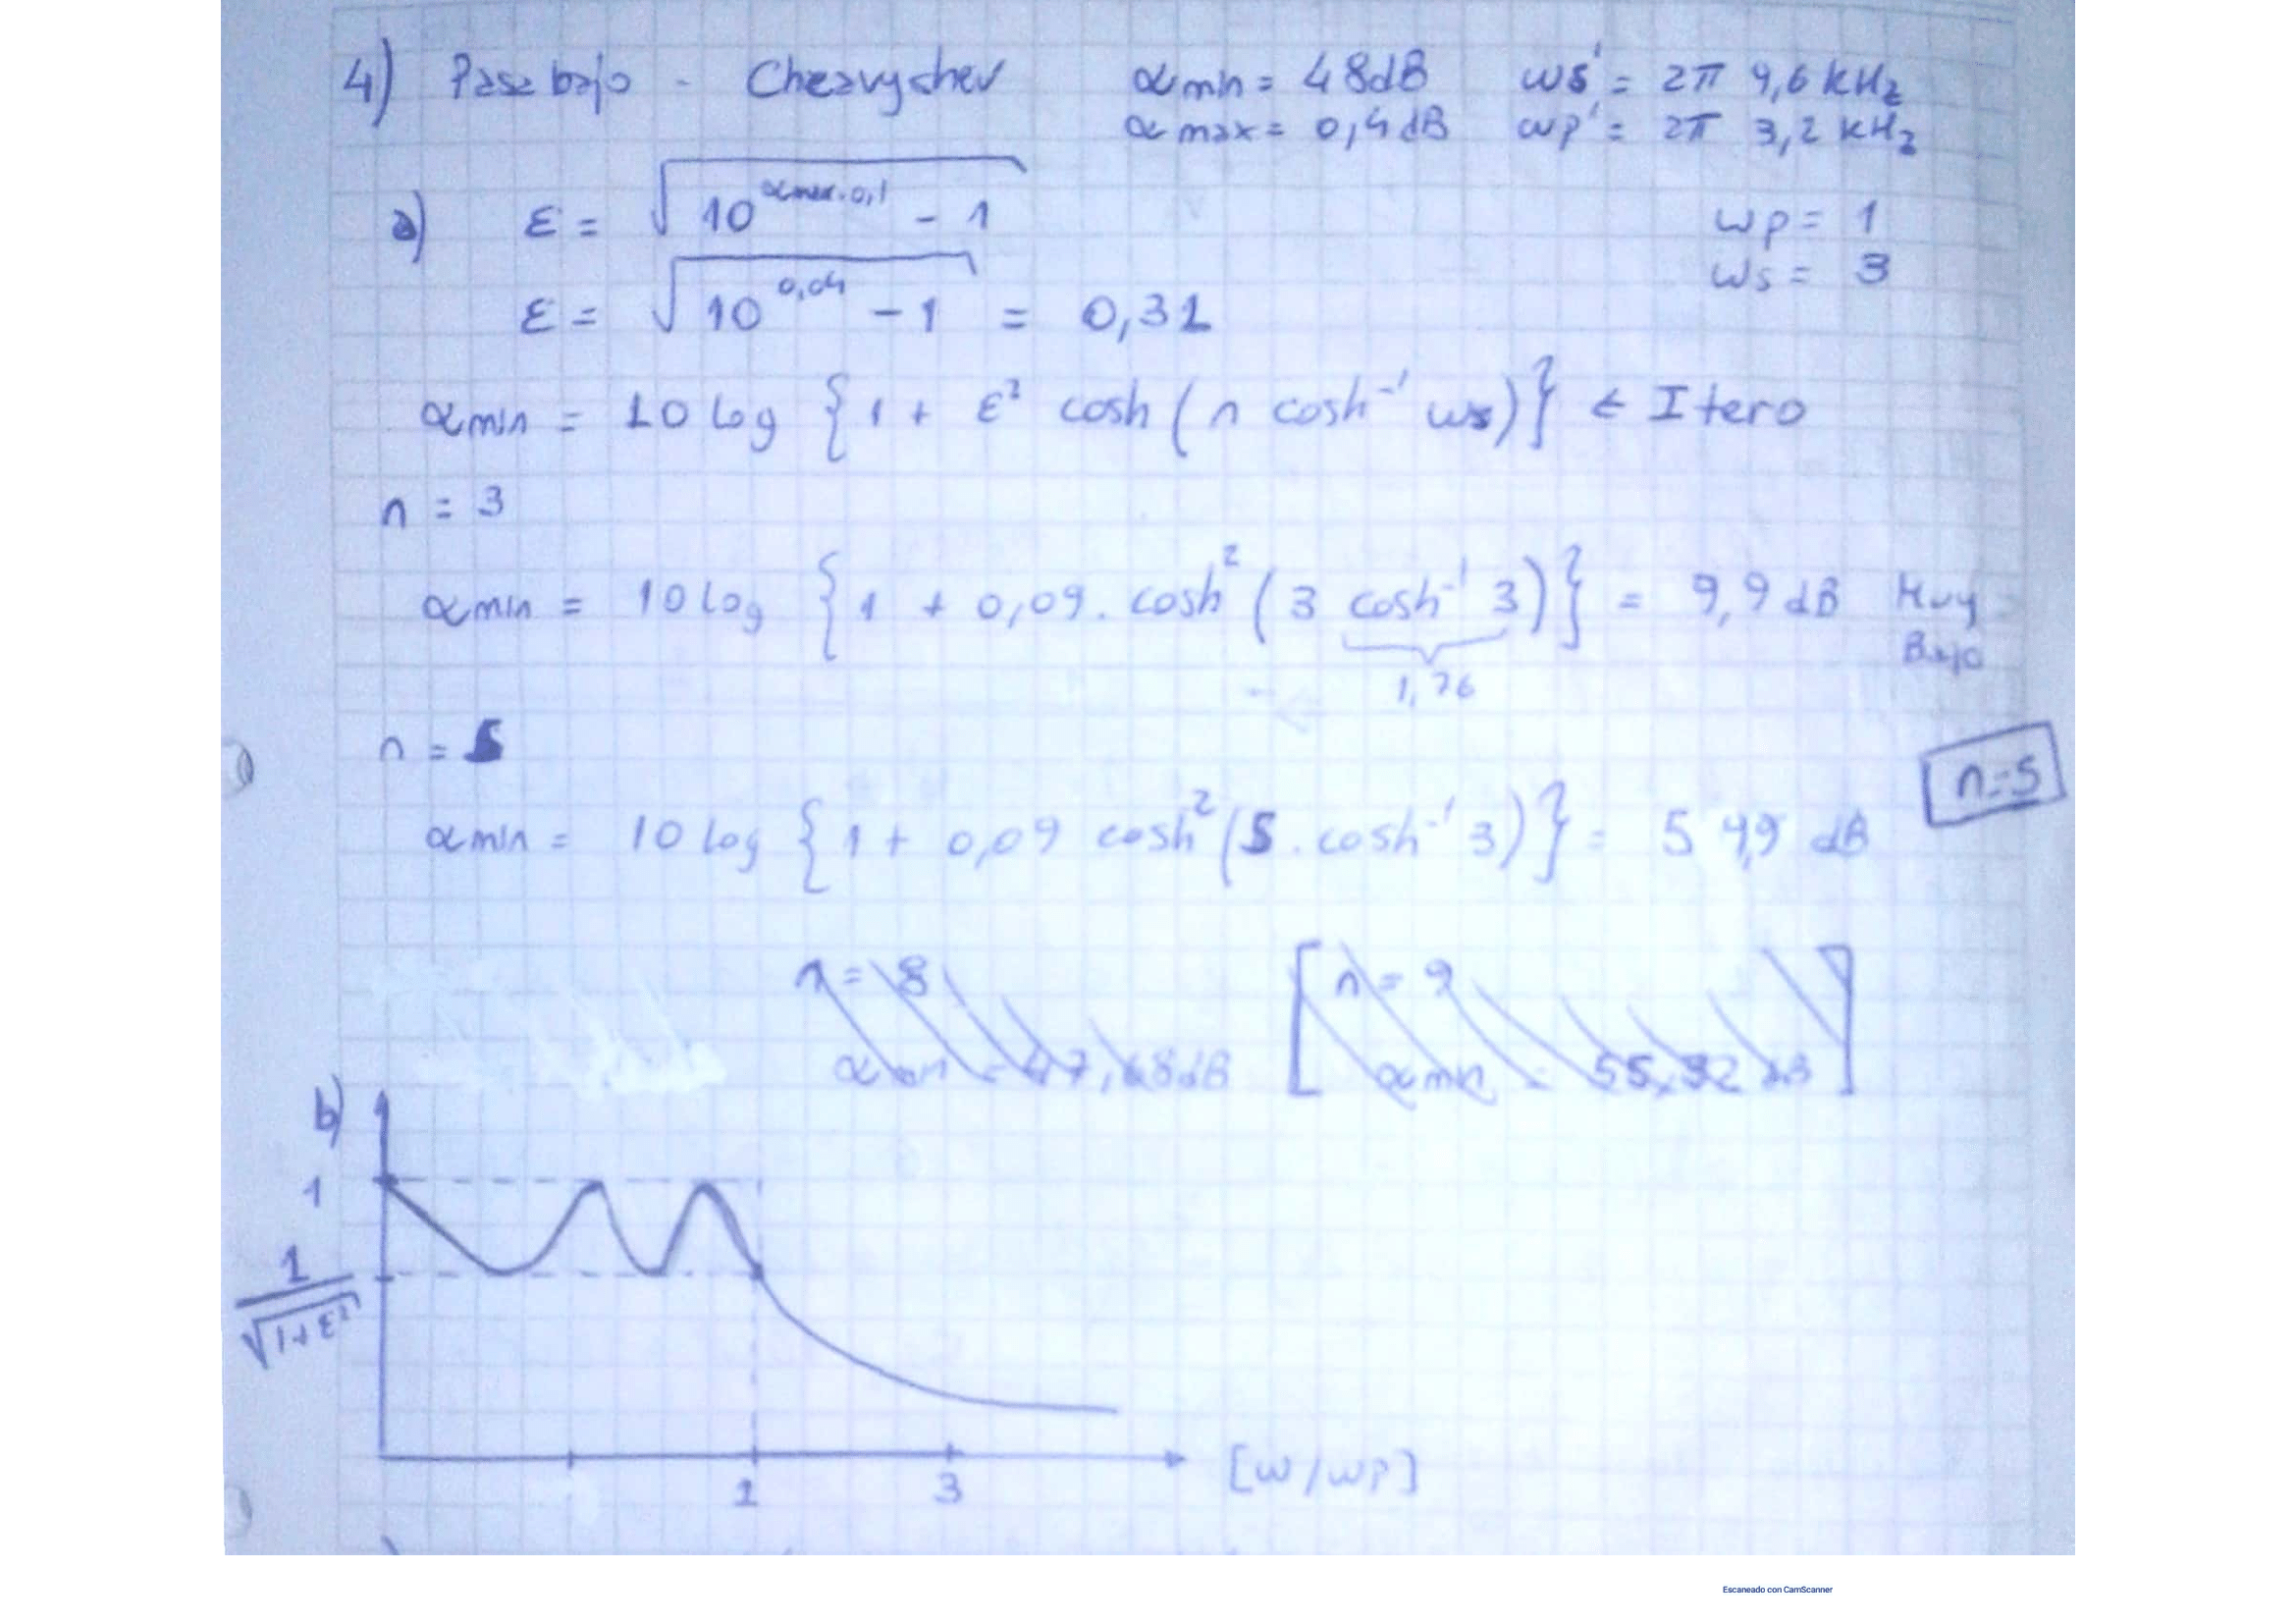 4) Pasa bajo - Cheavychev αmin = 48dB ws' = 2π 9,6 kHz
αmax = 0,4dB wp' = 2π 3,2 kHz
a) ε = √(10^(αmax.0,1) - 1) wp = 1
ws = 3
ε = √(10^(0,04) - 1) = 0,31
αmin = 10 log {1 + ε² cosh (n cosh⁻¹ ws)} ← Itero
n = 3
αmin = 10 log {1 + 0,09. cosh² (3 cosh⁻¹ 3)} = 9,9 dB Muy
Bajo
1,76
n = 5
n=5
αmin = 10 log {1 + 0,09 cosh² (5. cosh⁻¹ 3)} = 54,9 dB
n = 8 [n = 9
αmin = 47,68dB αmin = 55,32 dB]
b)
1
1/√(1+ε²)
1 3 [w/wp]
Escaneado con CamScanner